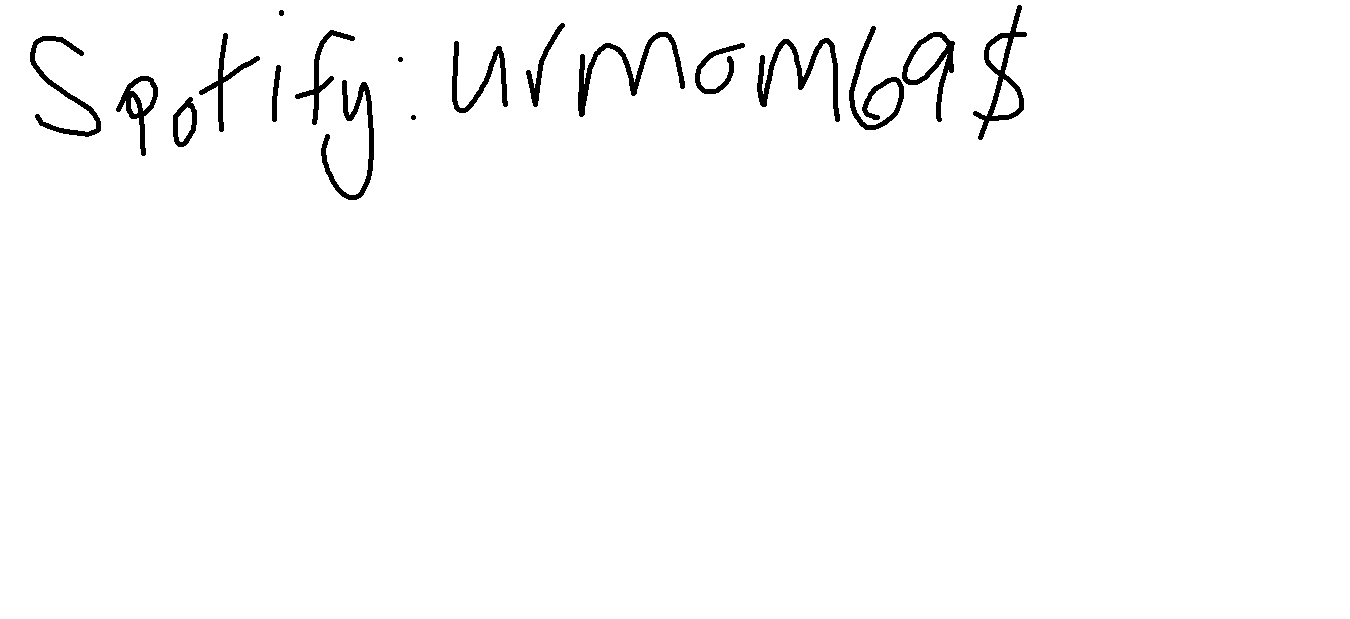 Spotify: urmom69$